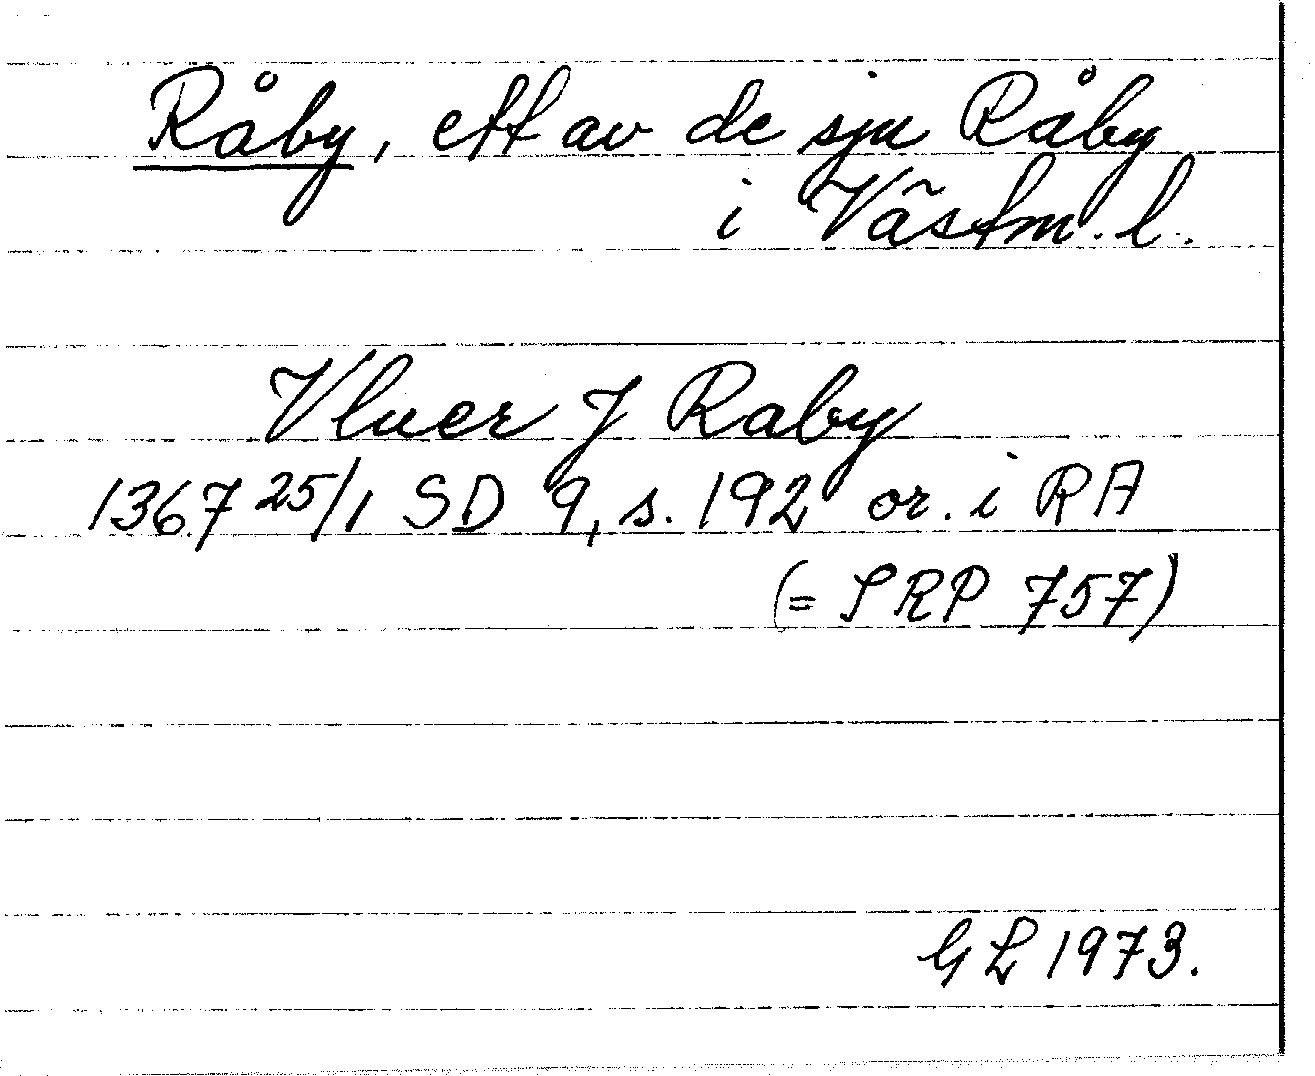 Råby, ett av de sju Råby
i Västm. l.
Vluer J Raby
1367 25/1 SD 9, s. 192 or. i RA
(= SRP 757)
GL 1973.